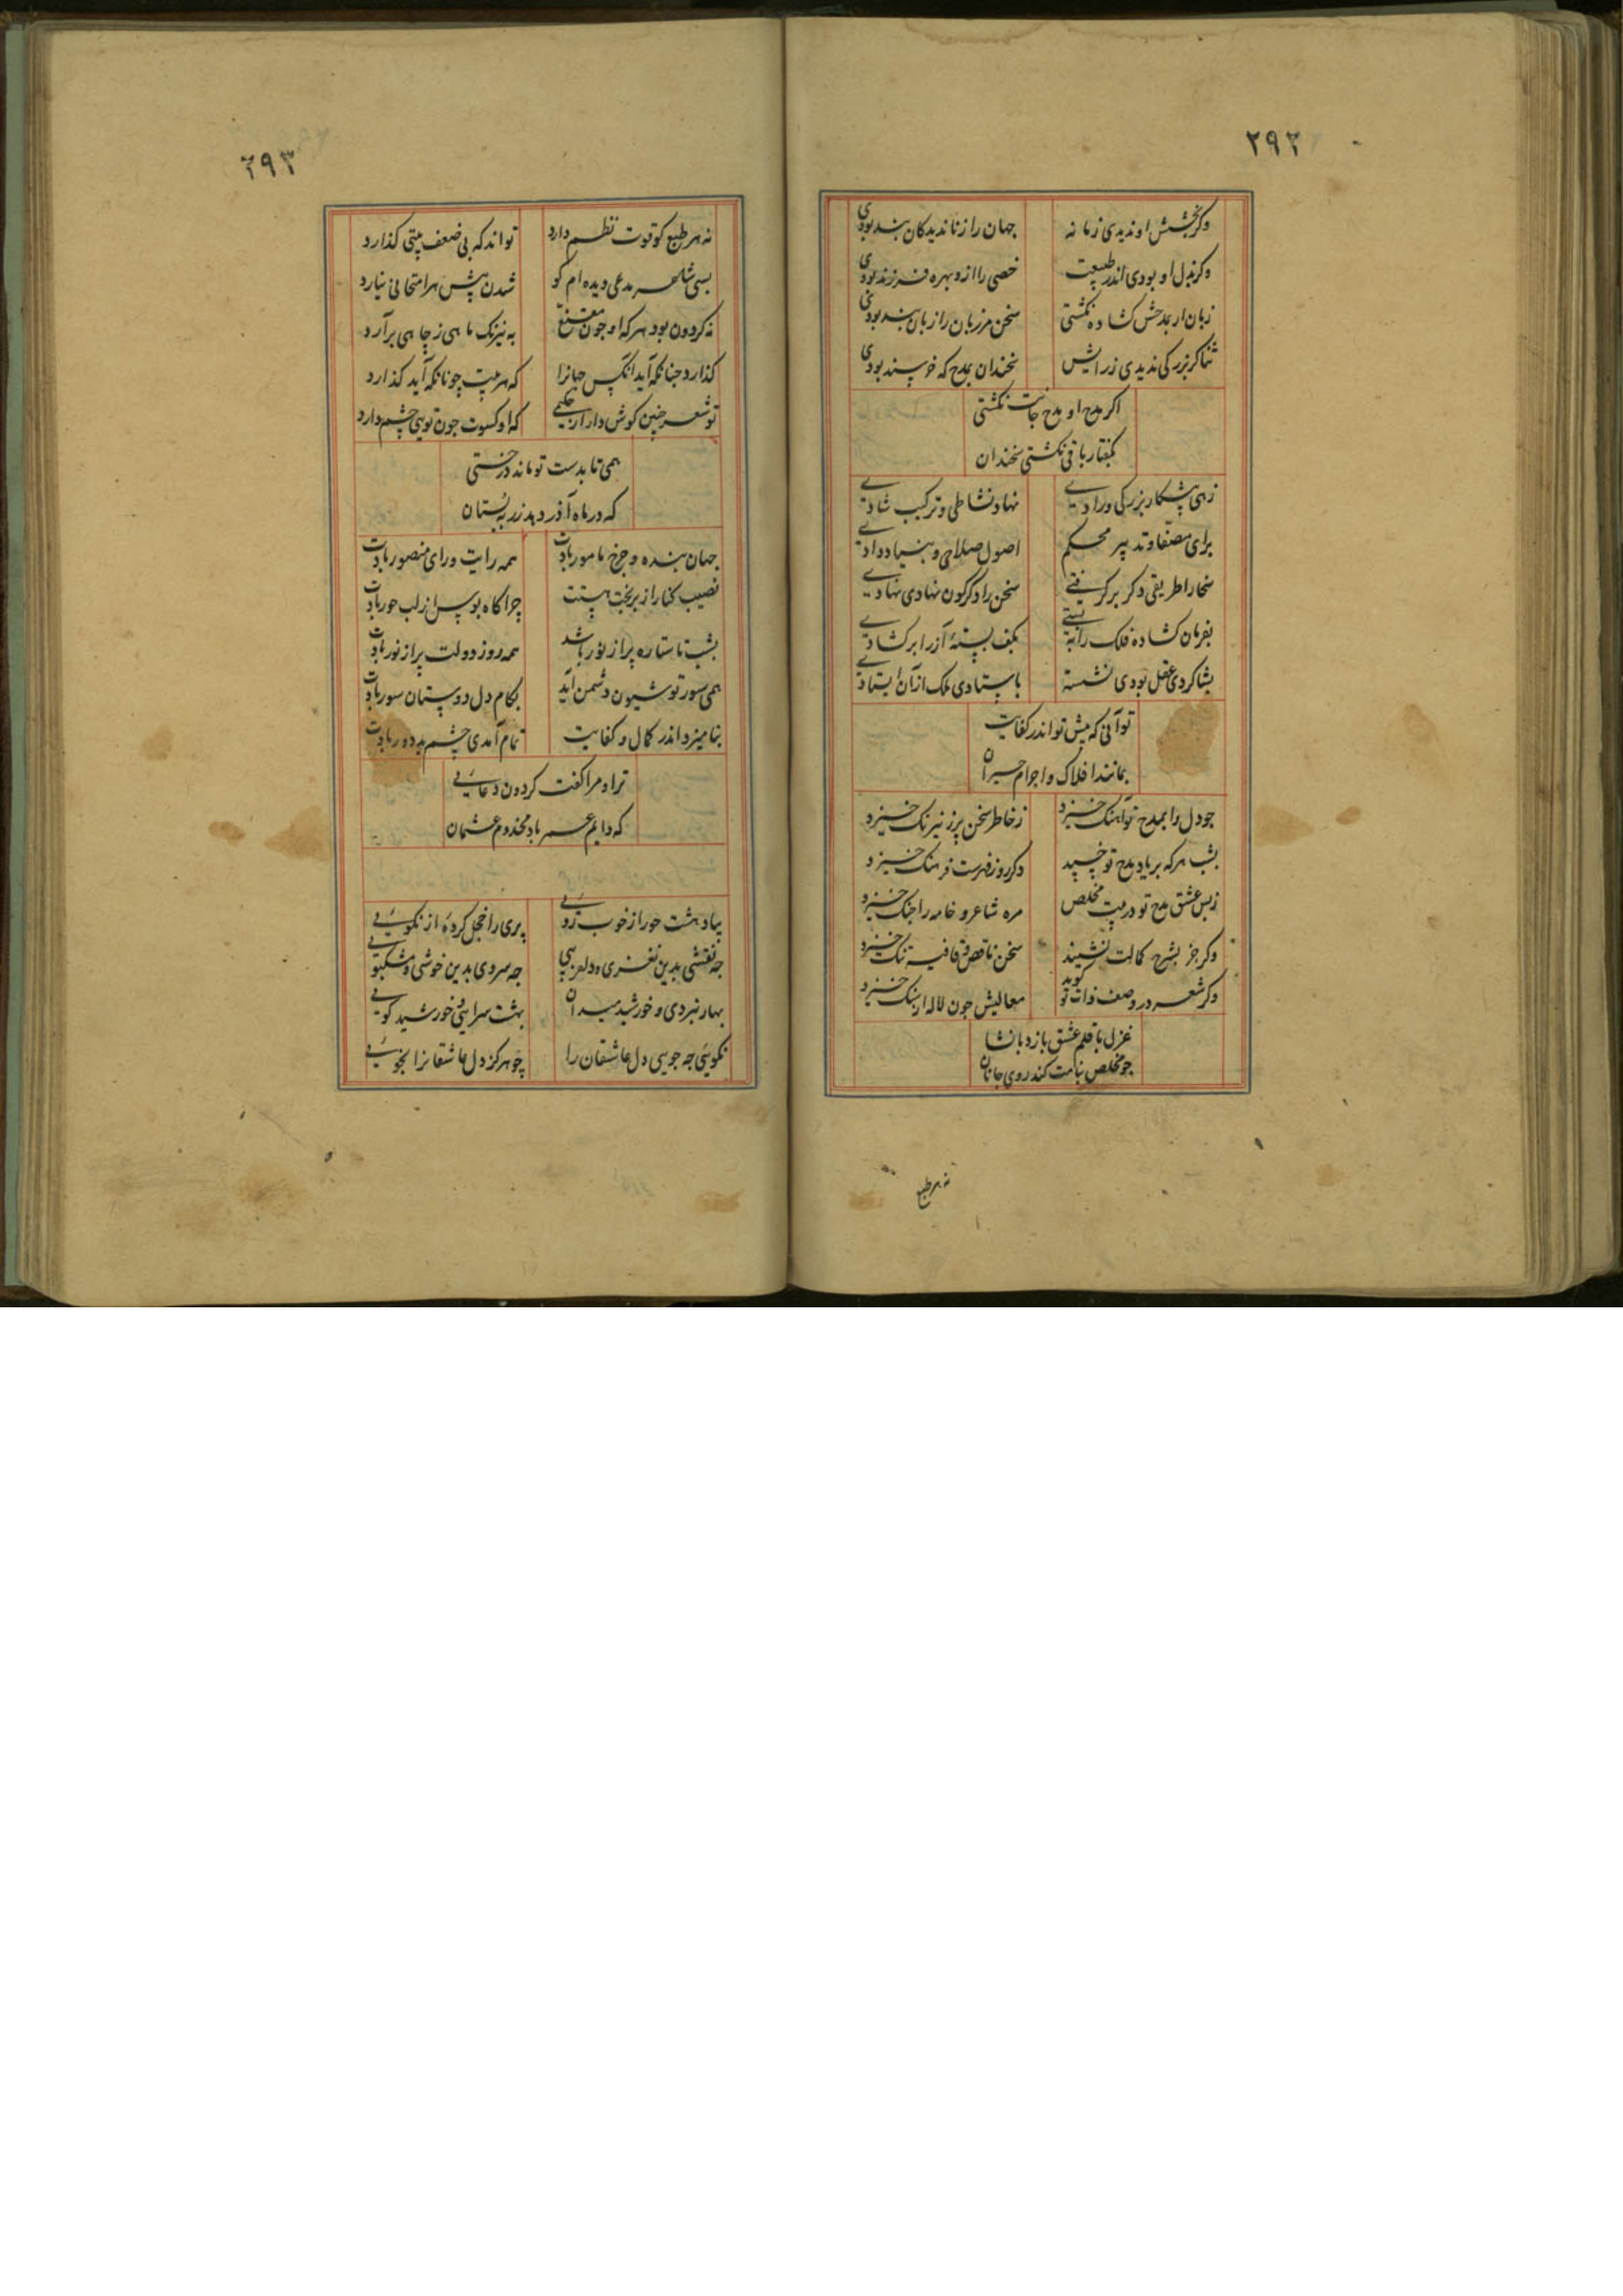 ۲۹۲
وکر بخشش او ندیدی زمانه جهان را ز نا دیدکان بند بودی
وکر بذل او بودی اندر طبیعت خصی را از و بهره فرزند بودی
زبان ار بمدحش کشاده نکشتی سخن مرزبان را زبان بند بودی
ثنا کر بزرکی ندیدی ز رایش سخندان بمدح که خرسند بودی
اکر مدح او مدح جانت نکشتی
بکفتار باقی نکشتی سخندان
زهی پیشکار بزرکی و رادی نهاد نشاطی و ترکیب شادی
برای مصفا و تدبیر محکم اصول صلاحی و بنیاد دادی
سخا را طریقی دکر بر کرفتی سخن را دکرکون نهادی نهادی
بفرمان کشاده فلک را ببستی بکف بسته آز را بر کشادی
بشاکردی عقل بودی نشسته باستادی ملک از آن ایستادی
تو آنی که پیش تو اندر کفایت
بمانند افلاک و اجرام حیران
چو دل را بمدح تو آهنک خیزد ز خاطر سخن پر ز نیرنک خیزد
بشب هر که بر یاد مدح تو خسپد دکر روز فهرست فرهنک خیزد
ز بس عشق مدح تو در بیت مخلص مره شاعر و خامه را جنک خیزد
وکر جز بشرح کمالت نشیند سخن ناقص و قافیه تنک خیزد
وکر شعر در وصف ذات تو کوید معالیش جون لاله از سنک خیزد
غزل با قلم عشق بازد بانشا
چو مخلص بنامت کند روی جانان
نه هر طبع
۲۹۳
نه هر طبع کو قوت نظم دارد تواند که بی ضعف بیتی کذارد
بسی شاعر مدعی دیده ام کو شدن پیش هر امتحانی نیارد
نه کردون بود هر که او جون مقنع به نیرنک ماهی ز چاهی برآرد
کذارد جنانکه آید آنکس جهانرا که هر بیت چونانکه آید کذارد
تو شعر چنین کوش دار از حکیمی که او کسوت جون تویی چشم دارد
همی تا بدست تو ماند درختی
که در ماه آذر دهد زر به بستان
جهان بنده و جرخ مامور بادت همه رایت و رای منصور بادت
نصیب کنار از بر بخت بستت چراکاه بوس از لب حور بادت
بشب تا ستاره پر از نور باشد همه روز دولت پر از نور بادت
همی سور تو شیون دشمن آید بکام دل دوستان سور بادت
بنامیزد اندر کمال و کفایت تمام آمدی چشم بد دور بادت
ترا و مرا کفت کردون دعایی
که دایم عمر باد مخدوم عثمان
بیاد بهشت حور از خوب رویی پری را خجل کرده از نکویی
جه نقشی بدین نغزی و دلفریبی جه سروی بدین خوشی و مشکبویی
بهار نبردی و خورشید میدان بهشت سرایی و خورشید کویی
نکویی جه جویی دل عاشقان را چو هرکز دل عاشقانرا نجویی